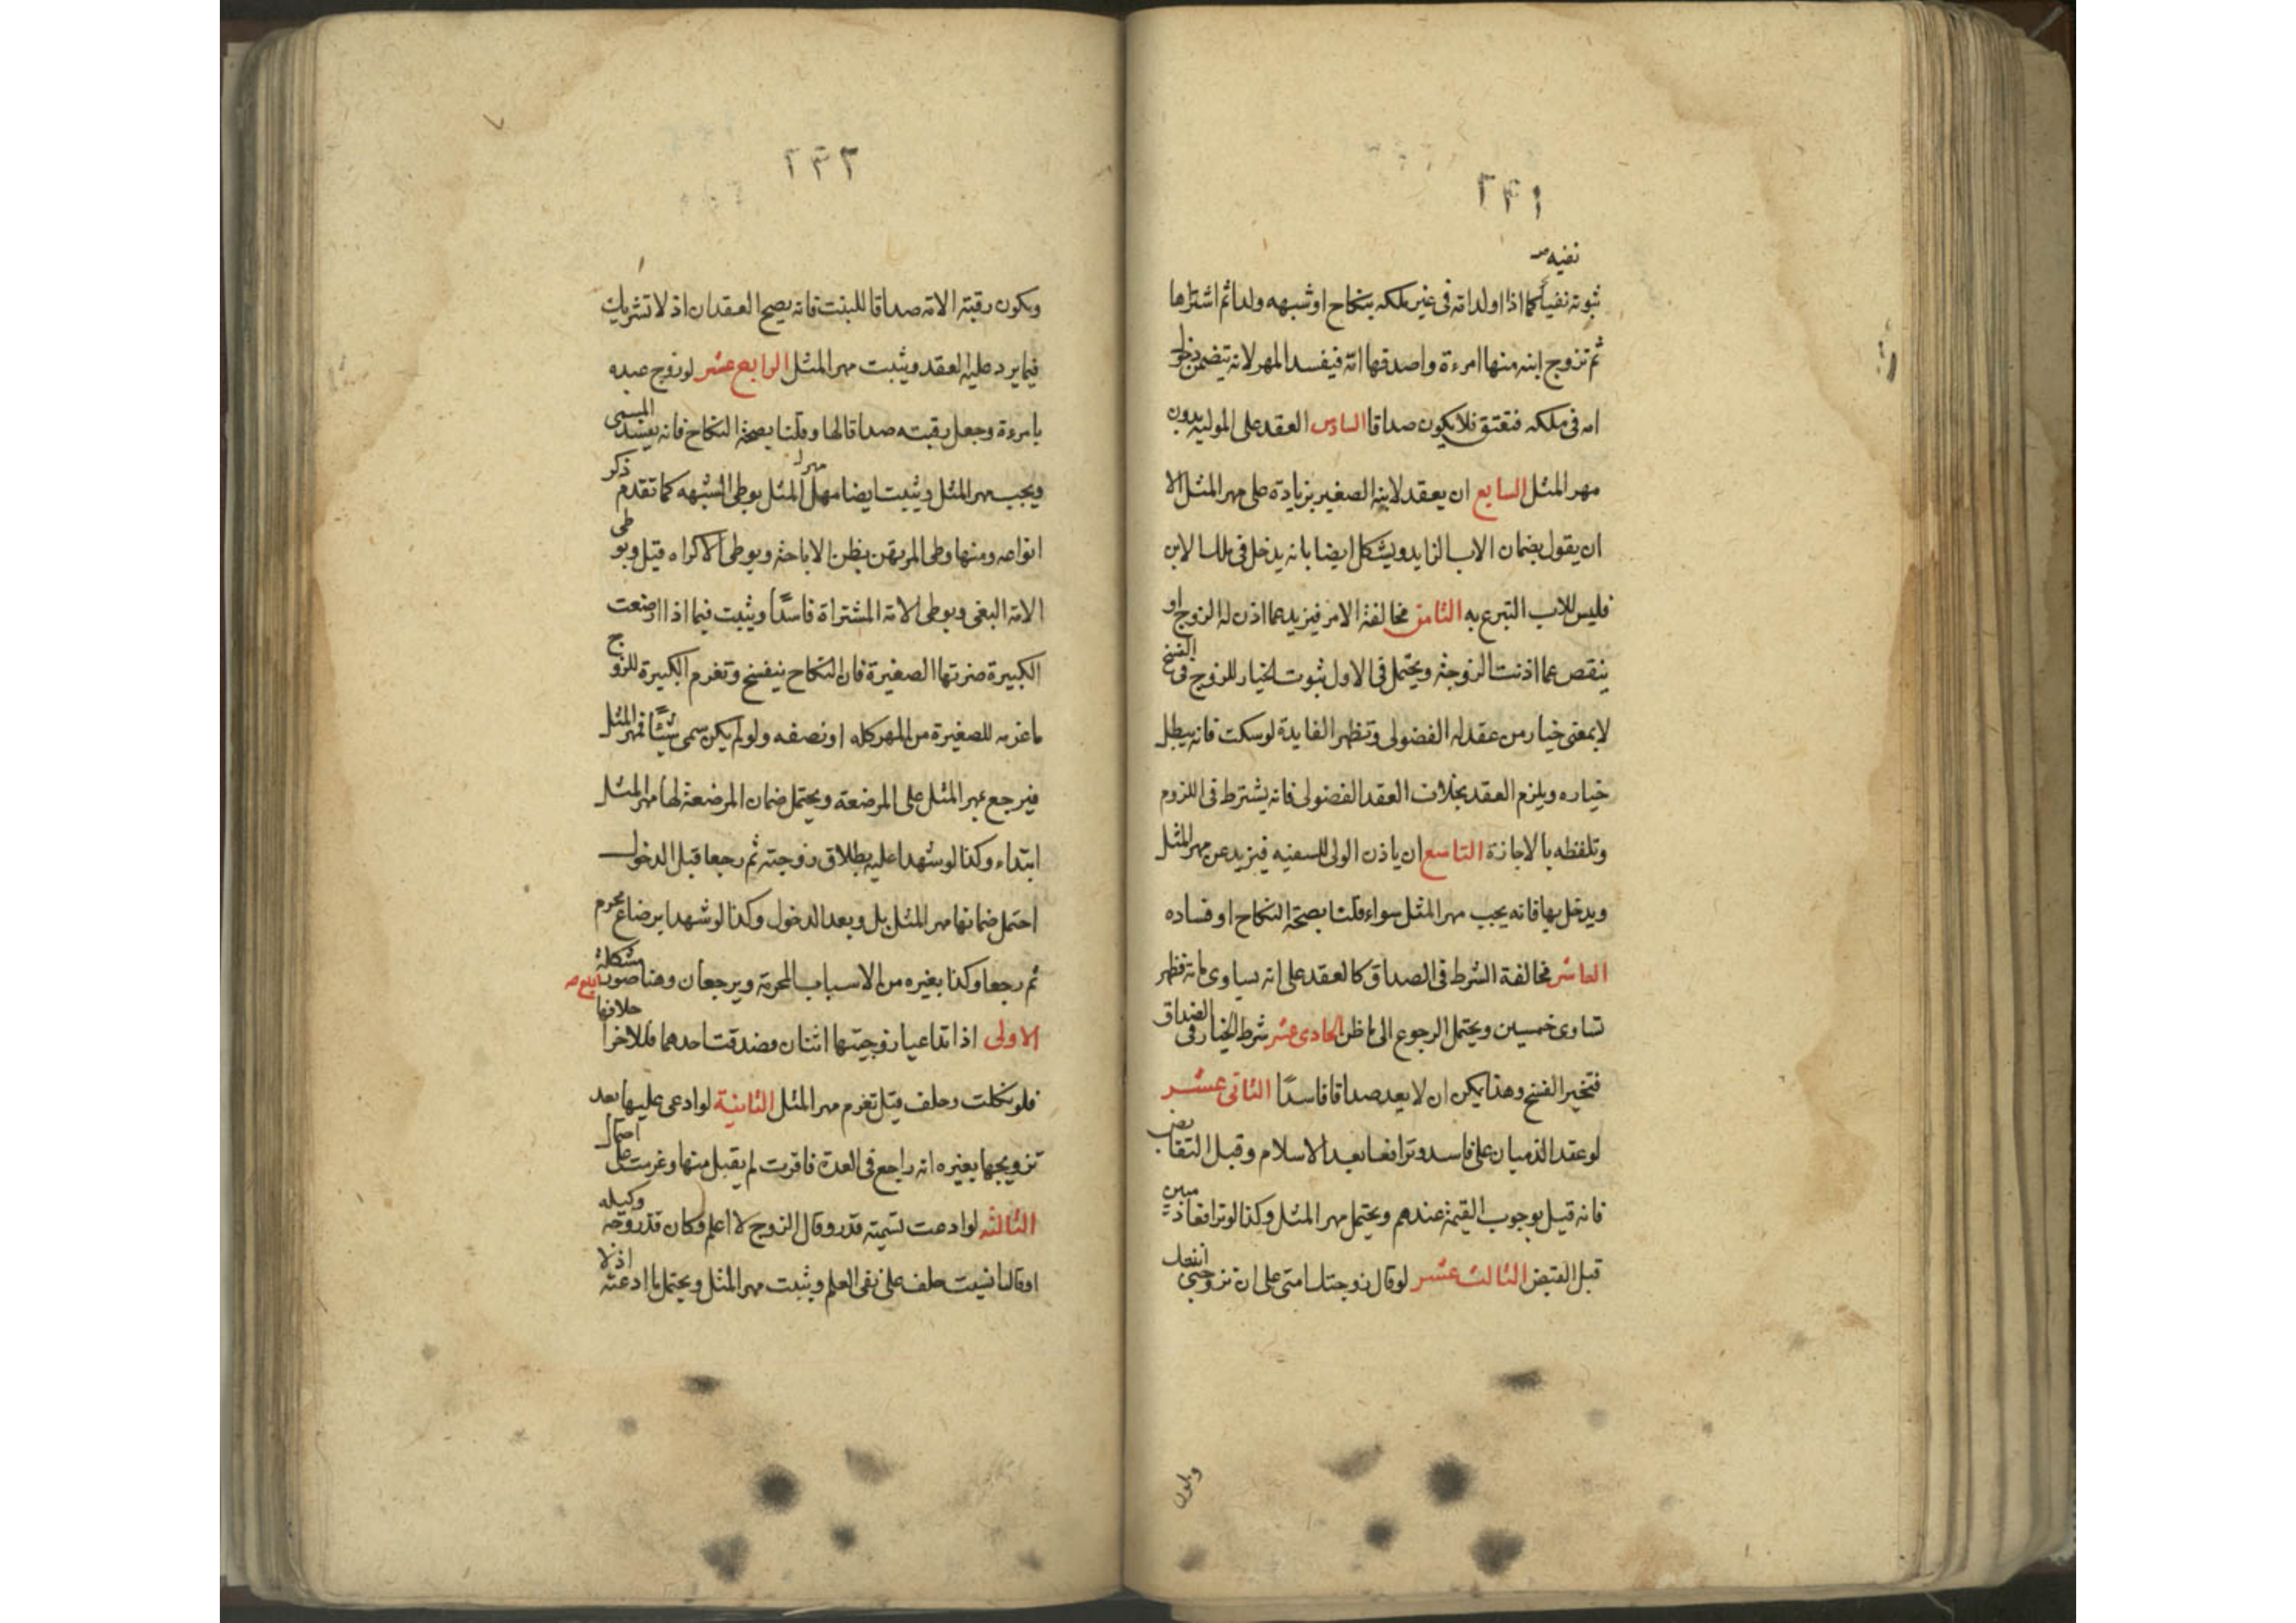 ٢٣١
نفيه
ثبوته نفيا كما اذا اولد امة فى غير ملكه بنكاح او شبهه ولدا ثم اشتراها
ثم تزوج ابنه منها امرءة واصدقها امه فيفسد المهر لانه يتضمن دخول
امه فى ملكه فتعتق فلا يكون صداقا السادس العقد على المولية بدون
مهر المثل السابع ان يعقد لابنه الصغير بزيادة على مهر المثل الا
ان يقول بضمان الاب الزايد ويشكل ايضا بانه يدخل فى ملك الابن
فليس للاب التبرع به الثامن مخالفة الامر فيزيد عما اذن له الزوج او
ينقص عما اذنت الزوجة ويحتمل فى الاول ثبوت الخيار للزوج فى الفسخ
لا بمعنى خيار من عقد له الفضولى وتظهر الفايدة لو سكت فانه يبطل
خياره ويلزم العقد بخلاف العقد الفضولى فانه يشترط فى اللزوم
وتلفظه بالاجازة التاسع ان ياذن الولى للسفيه فيزيد عن مهر المثل
ويدخل بها فانه يجب مهر المثل سواء قلنا بصحة النكاح او فساده
العاشر مخالفة الشرط فى الصداق كالعقد على انه يساوى مائة فظهر
تساوى خمسين ويحتمل الرجوع الى ما ظن الحادى عشر شرط الخيار فى الصداق
فتخير الفسخ وهذا يمكن ان لا يعد صداقا فاسدا الثانى عشر
لو عقد الذميان على فاسد وترافعا بعد الاسلام وقبل التقابض
فانه قيل بوجوب القيمة عندهم ويحتمل مهر المثل وكذا لو ترافعا ذميين
قبل القبض الثالث عشر لو قال زوجتك امتى على ان تزوجنى ابنتك
ويكون
٢٣٢
ويكون رقبة الامة صداقا للبنت فانه يصح العقدان اذ لا تشريك
فيما يرد عليه العقد ويثبت مهر المثل الرابع عشر لو زوج عبده
بامرءة وجعل رقبته صداقا لها وقلنا بصحة النكاح فانه يفسد المسمى
ويجب مهر المثل ويثبت ايضا مهر المثل بوطى الشبهه كما تقدم ذكر
انواعه ومنها وطى المرتهن بظن الاباحة وبوطى الاكراه قيل وبوطى
الامة البغى وبوطى الامة المشتراة فاسدا ويثبت فيما اذا ارضعت
الكبيرة ضرتها الصغيرة فان النكاح ينفسخ وتغرم الكبيرة للزوج
ما غرمه للصغيرة من المهر كله او نصفه ولو لم يكن سمى شيئا فمهر المثل
فيرجع بمهر المثل على المرضعة ويحتمل ضمان المرضعة لها مهر المثل
ابتداء وكذا لو شهدا عليه بطلاق زوجته ثم رجعا قبل الدخول
احتمل ضمانها مهر المثل بل وبعد الدخول وكذا لو شهدا برضاع محرم
ثم رجعا وكذا بغيره من الاسباب المحرمة ويرجعان وهنا صور مشكلة
الاولى اذا تداعيا زوجيتها اثنان فصدقت احدهما فللاخر احلافها
فلو نكلت وحلف قيل تغرم مهر المثل الثانية لو ادعى عليها بعد
تزويجها بغيره انه راجع فى العدة فاقرت لم يقبل منها وغرمت على احتمال
الثالثة لو ادعت تسمية قدر وقال الزوج لا اعلم وكان قد زوجه وكيله
او قال انسيت حلف على نفى العلم ويثبت مهر المثل ويحتمل ما ادعته اذ لا